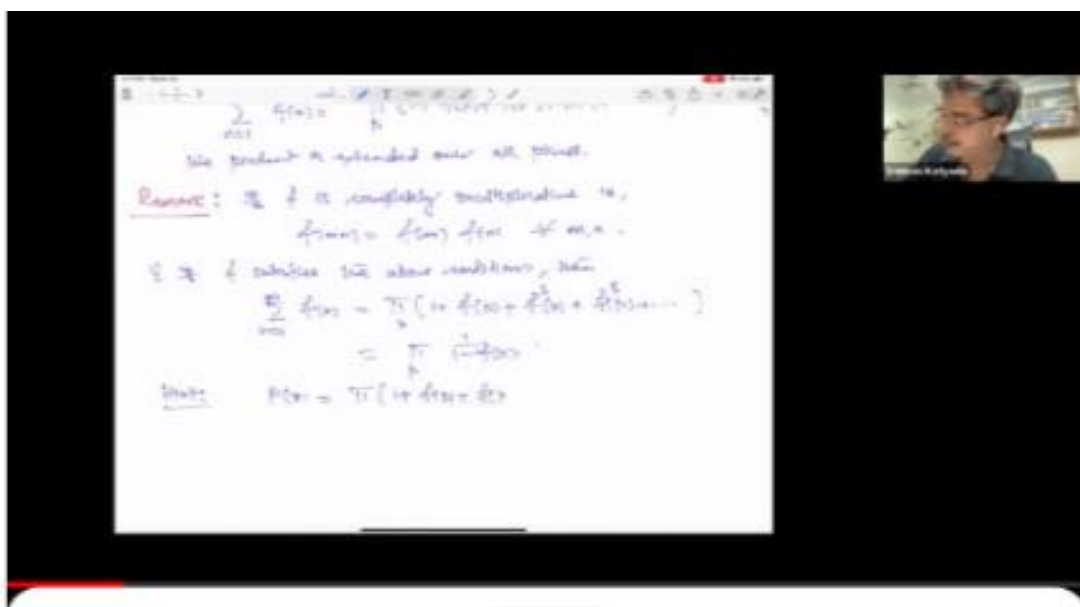 ∑ f(n) = ∏
the product is extended over all primes.
Remark: If f is completely multiplicative ie,
f(mn) = f(m) f(n) ∀ m,n.
& if f satisfies the above conditions, then
∑ f(n) = ∏ ( 1+ f(p) + f²(p) + f³(p)+ ... )
= ∏ 1/(1-f(p))
Proof: P(x) = ∏ (1+ f(p)+